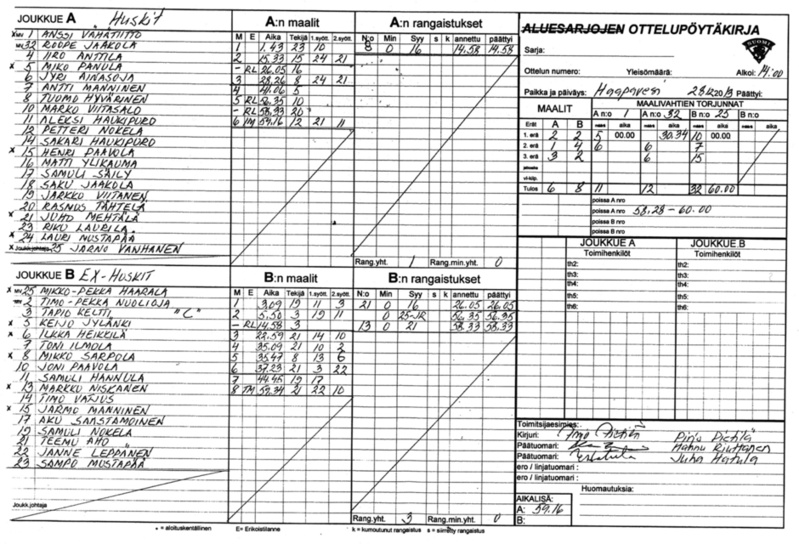 JOUKKUE A Huskit
x MV 1 ANSSI VÄHÄTIITTO
MV 32 ROOPE JAAKOLA
4 IIRO ANTTILA
x 5 MIKO PANULA
6 JYRI AINASOJA
7 ANTTI MANNINEN
8 TUOMO HYVÄRINEN
10 MARKO VIITASALO
11 ALEKSI HAUKIPURO
12 PETTERI NOKELA
14 SAKARI HAUKIPURO
x 15 HENRI PAAVOLA
16 MATTI YLIKAUMA
17 SAMULI SÄILY
18 SAKU JAAKOLA
19 JARKKO VIITANEN
20 RASMUS TÄHTELÄ
x 21 JUHO MEHTÄLÄ
23 RIKU LAURILA
x 24 LAURI MUSTAPÄÄ
x Joukk.johtaja 25 JARNO VANHANEN
A:n maalit
M E Aika Tekijä 1.syött. 2.syött.
1 1.43 23 10
2 15.33 15 24 21
- RL 26.05 16
3 28.26 8 24 21
4 41.06 5
5 RL 56.35 10
- RL 58.33 20
6 TM 59.16 12 21 11
A:n rangaistukset
N:o Min Syy s k annettu päättyi
8 0 16 14.58 14.58
Rang.yht. 1 Rang.min.yht. 0
JOUKKUE B EX-Huskit
x MV 25 MIKKO-PEKKA HAARALA
MV 2 TIMO-PEKKA NUOLIOJA
3 TAPIO KELTTI "C"
x 5 KEIJO JYLÄNKI
x 6 ILKKA HEIKKILÄ
7 TONI ILMOLA
x 8 MIKKO SARPOLA
10 JONI PAAVOLA
11 SAMULI HANNULA
x 13 MARKKU NISKANEN
14 TIMO VATJUS
x 15 JARMO MANNINEN
17 AKU SAASTAMOINEN
19 SAMULI NOKELA
21 TEEMU AHO
22 JANNE LEPPÄNEN
23 SAMPO MUSTAPÄÄ
Joukk.johtaja
B:n maalit
M E Aika Tekijä 1.syött. 2.syött.
1 3.09 19 11 3
2 5.50 3 19 11
- RL 14.58 3
3 22.59 21 14 10
4 35.09 21 10 2
5 35.47 8 13 6
6 37.23 21 3 22
7 44.45 19 17
8 TM 59.34 21 22 10
B:n rangaistukset
N:o Min Syy s k annettu päättyi
21 0 16 26.05 26.05
0 25-JR 56.35 56.35
13 0 21 58.33 58.33
Rang.yht. 3 Rang.min.yht. 0
* = aloituskentällinen E= Erikoistilanne k = kumoutunut rangaistus s = siirretty rangaistus
ALUESARJOJEN OTTELUPÖYTÄKIRJA
SUOMI
Sarja:
Ottelun numero: Yleisömäärä: Alkoi: 14:00
Paikka ja päiväys: Haapavesi 28.12.2013 Päättyi:
MAALIT
MAALIVAHTIEN TORJUNNAT
A n:o 1 A n:o 32 B n:o 25 B n:o
Erät A B aika aika aika aika
1. erä 2 2 5 00.00 30.34 10
2. erä 1 4 6 6 7
3. erä 3 2 6 15
vl-kilp.
Tulos 6 8 11 12 32 60.00
poissa A nro
poissa A nro 58.28 - 60.00
poissa B nro
poissa B nro
JOUKKUE A JOUKKUE B
Toimihenkilöt Toimihenkilöt
th2: th2:
th3: th3:
th4: th4:
th5: th5:
th6: th6:
Toimitsijaesimies:
Kirjuri: Pirjo Pietilä
Päätuomari: Hannu Riuttanen
Päätuomari: Juha Hatula
ero / linjatuomari :
ero / linjatuomari :
Huomautuksia:
AIKALISÄ:
A: 59.16
B: